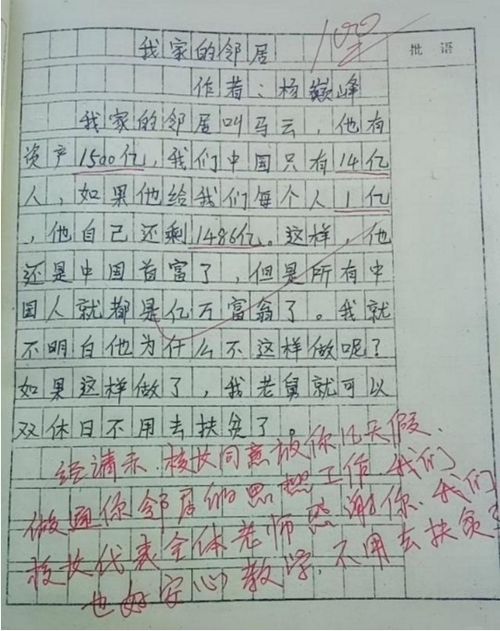 100
批语
我家的邻居
作者：杨巅峰
我家的邻居叫马云，他有
资产1500亿，我们中国只有14亿
人，如果他给我们每个人1亿
，他自己还剩1486亿。这样，他
还是中国首富了，但是所有中
国人就都是亿万富翁了。我就
不明白他为什么不这样做呢？
如果这样做了，我老舅就可以
双休日不用去扶贫了。
经请示，校女同意放你几天假、
做通你邻居的思想工作，我们
校女代表全体老师感谢你、我们
也好安心教学，不用去扶贫